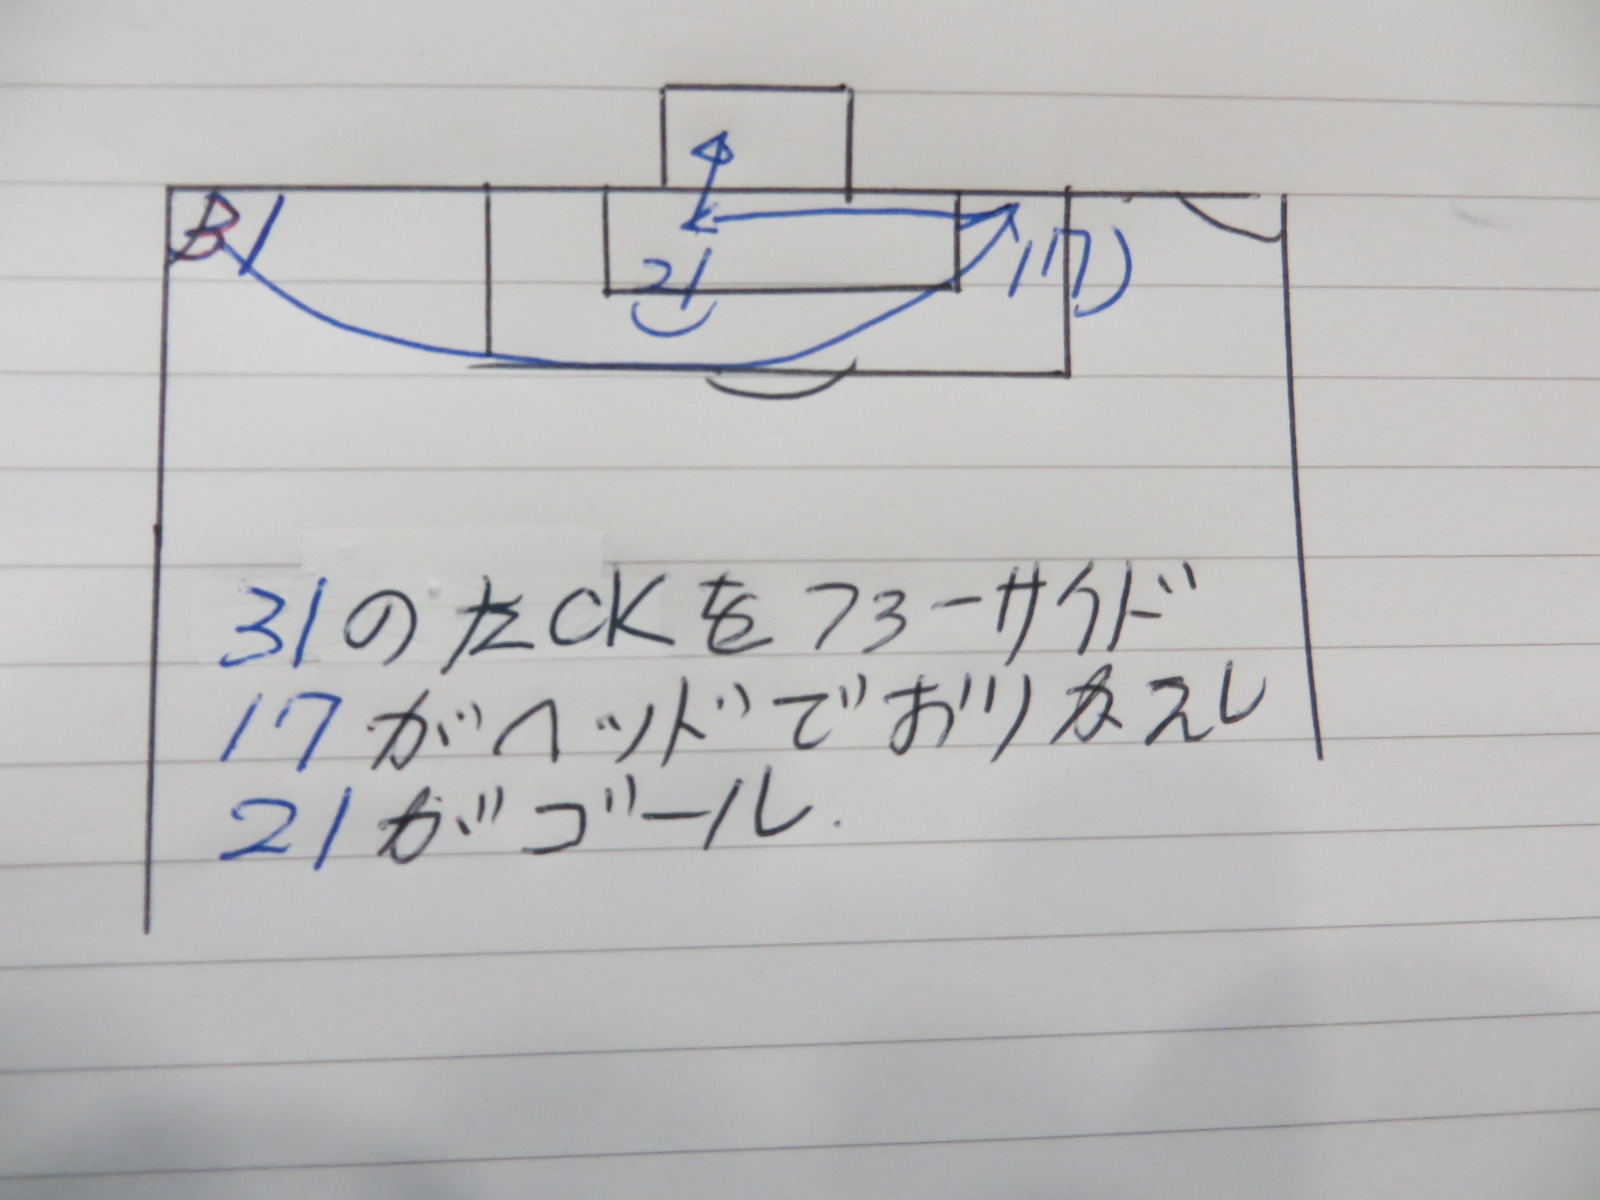 31
17
21
31の左CKをファーサイド
17がヘッドでおりかえし
21がゴール.